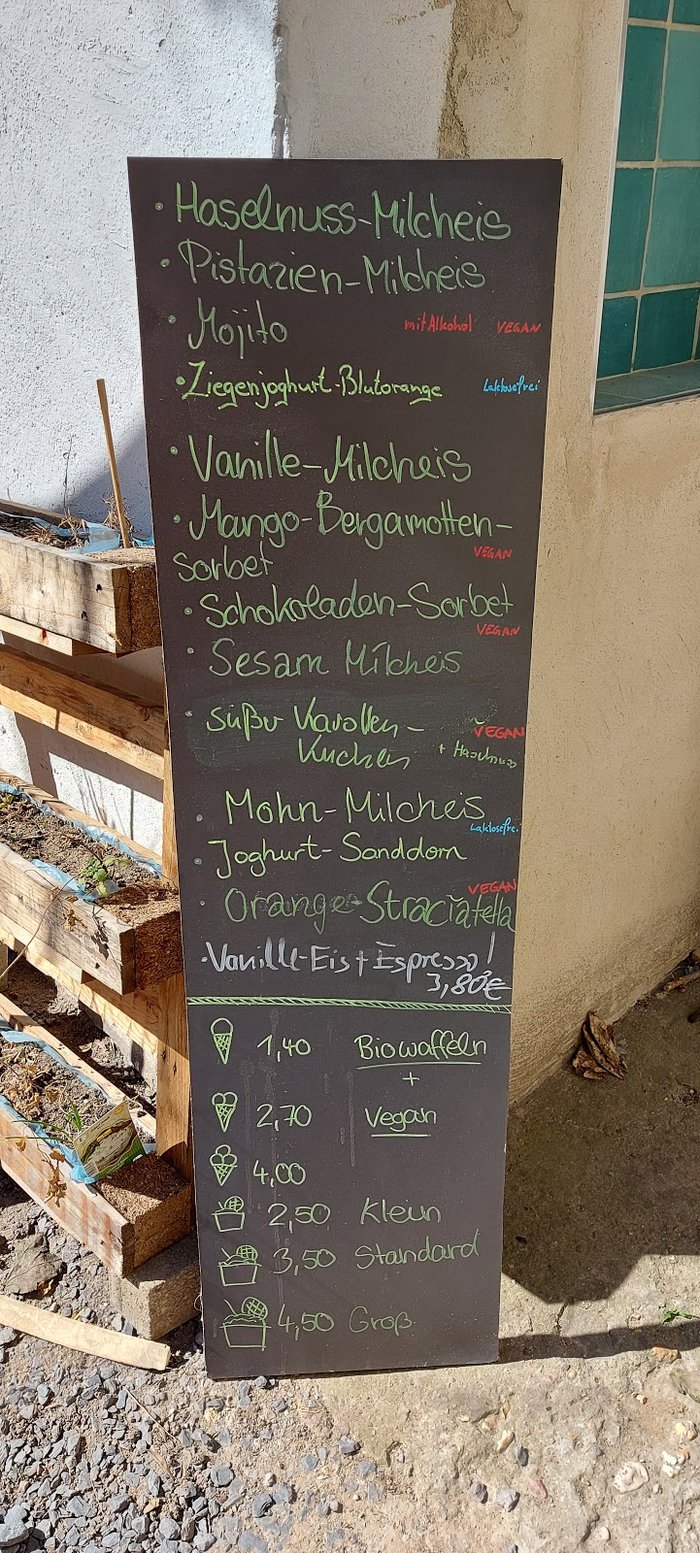 • Haselnuss-Milcheis
• Pistazien-Milcheis
• Mojito mit Alkohol VEGAN
• Ziegenjoghurt-Blutorange Laktosefrei
• Vanille-Milcheis
• Mango-Bergamotten-
sorbet VEGAN
• Schokoladen-Sorbet
VEGAN
• Sesam Milcheis
• süßer Karotten- VEGAN
Kuchen + Haselnuss
Mohn-Milcheis
Laktosefrei
• Joghurt-Sanddorn
VEGAN
• Orange-Straciatella
• Vanille-Eis + Espresso!
3,80€
1,40 Biowaffeln
+
2,70 Vegan
4,00
2,50 Klein
3,50 Standard
4,50 Groß